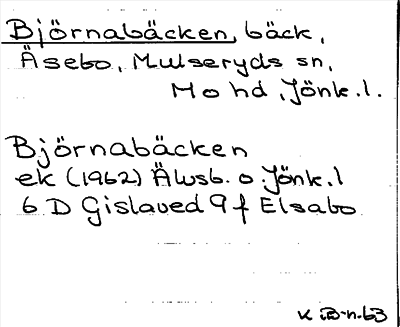 Björnabäcken, bäck,
Äsebo, Mulseryds sn,
Mo hd, Jönk. l.
Björnabäcken
ek (1962) Älvsb. o. Jönk. l
6 D Gislaved 9 f Elsabo